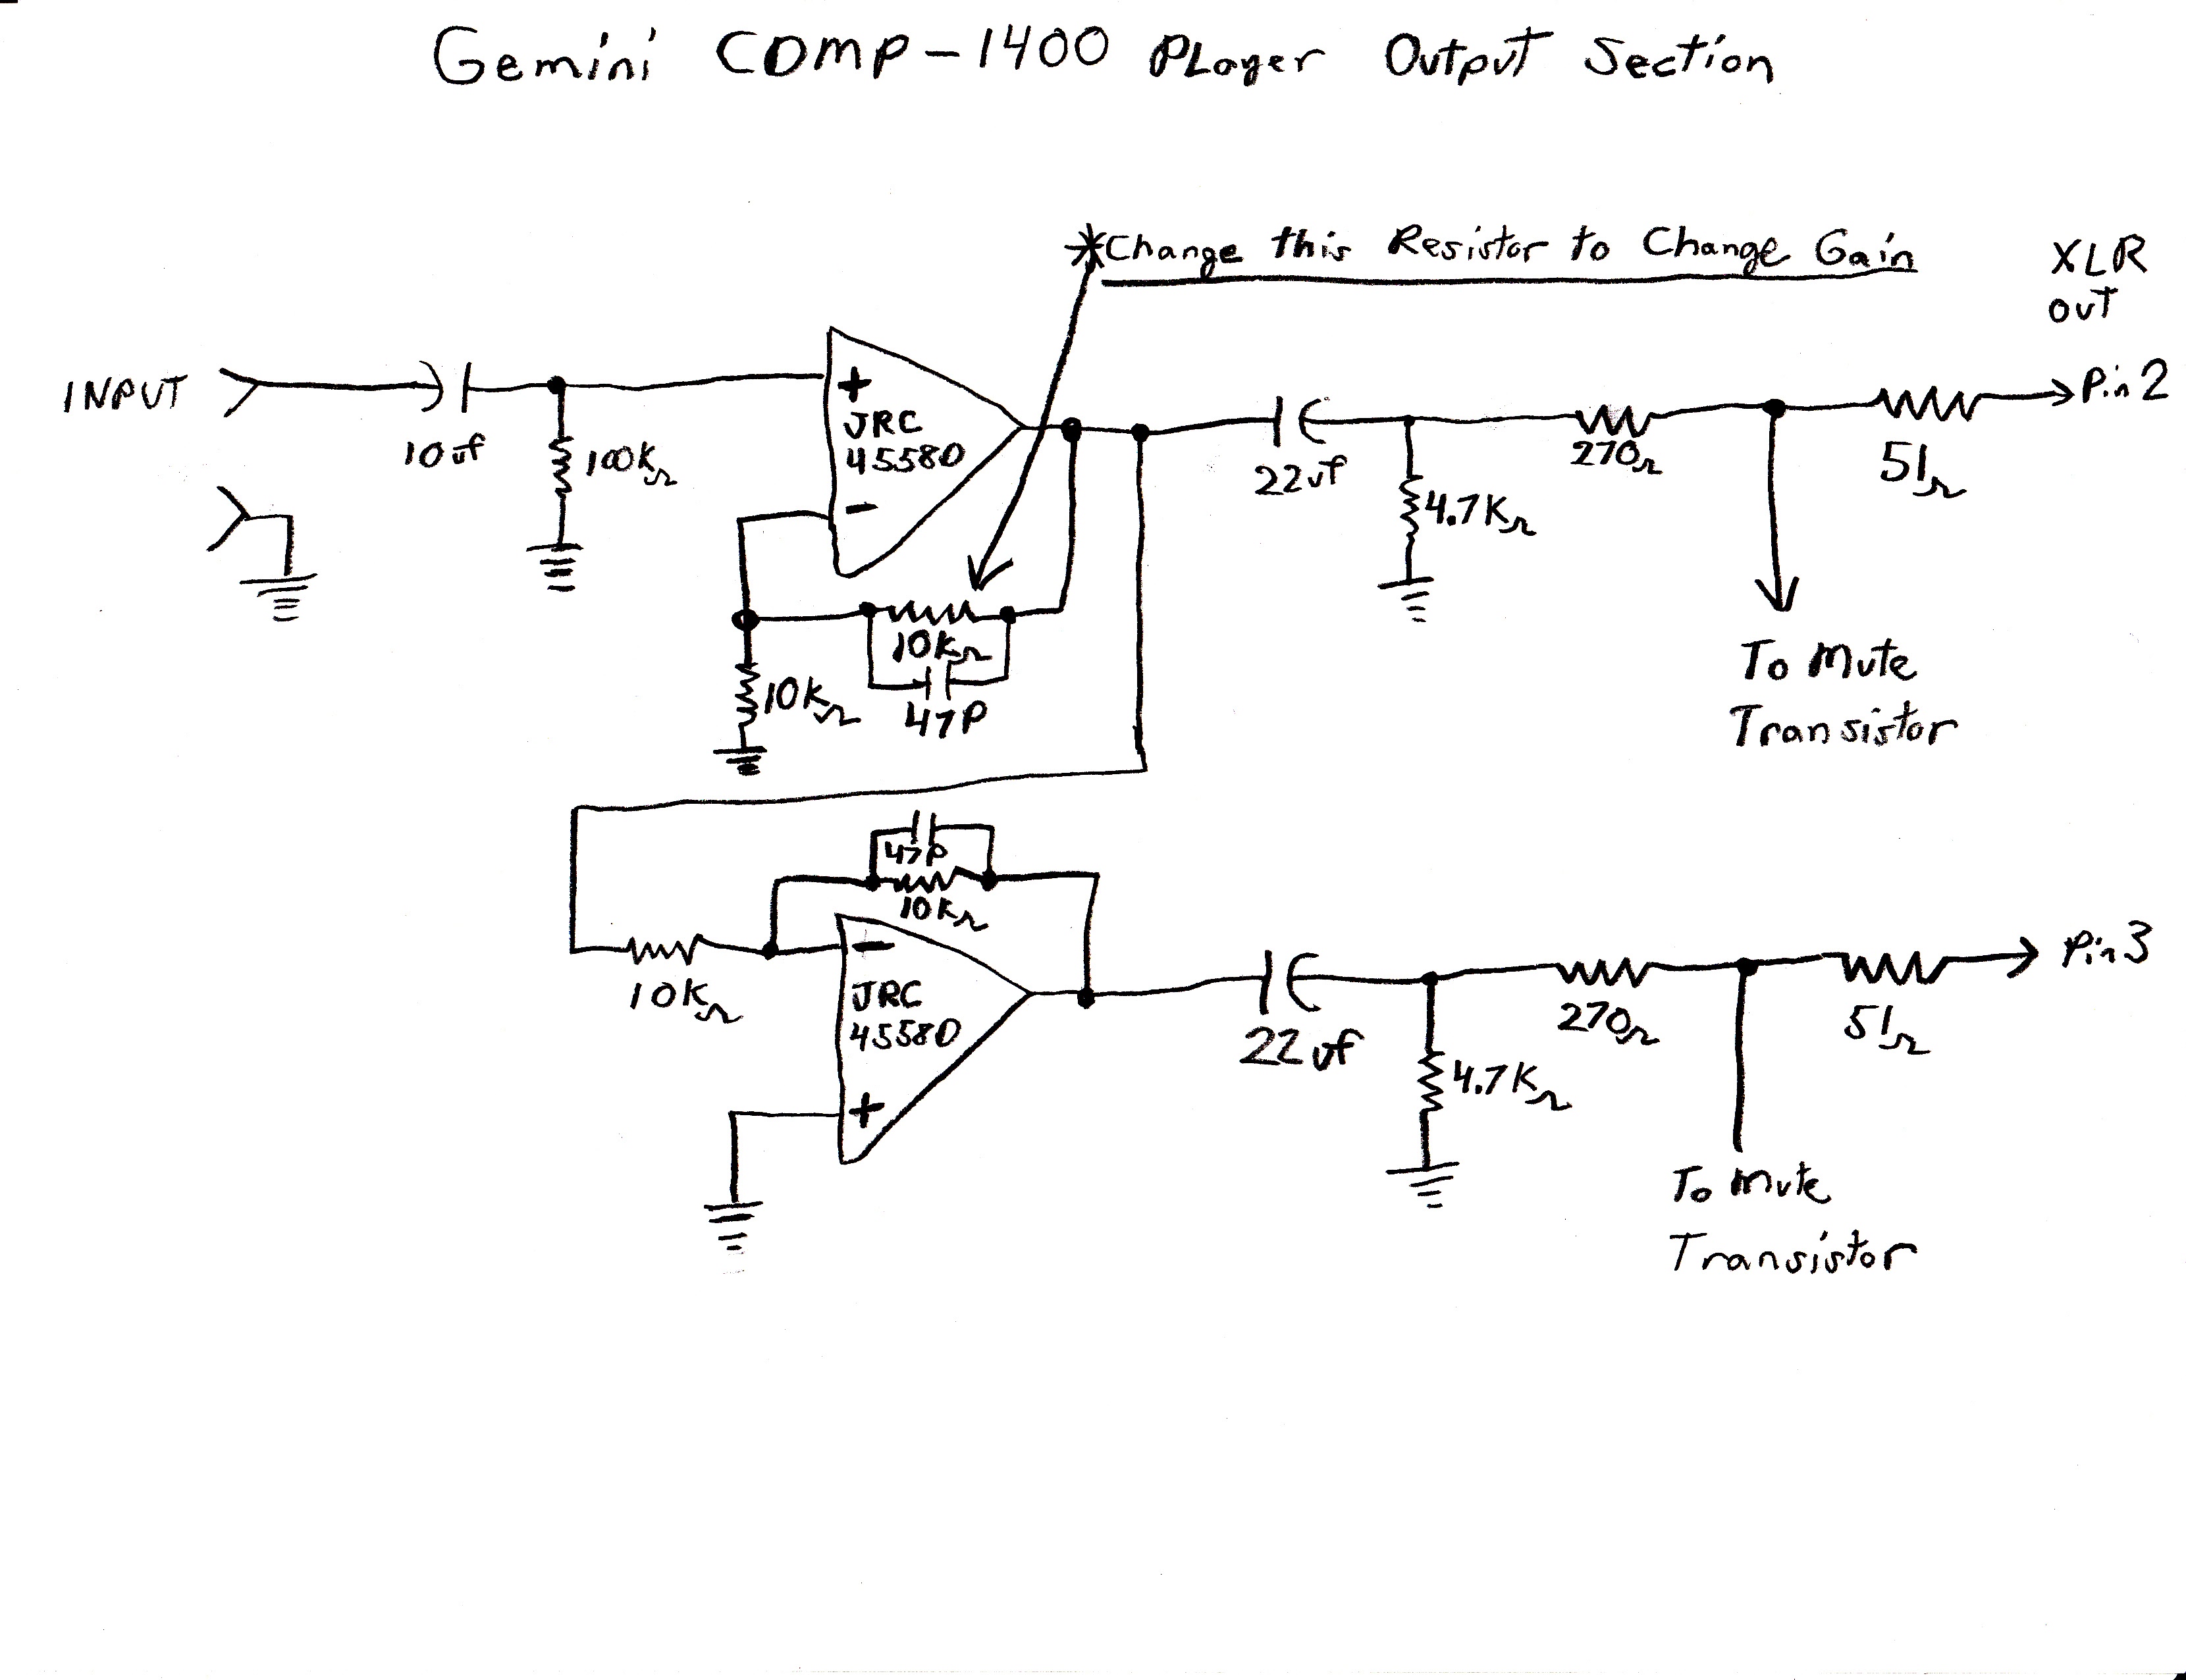 Gemini CDMP-1400 PLayer Output Section
*Change this Resistor to Change Gain
XLR
out
INPUT
10uf
100KΩ
+
JRC
4558D
-
22uf
4.7KΩ
270Ω
51Ω
Pin 2
10KΩ
47P
10KΩ
To Mute
Transistor
47P
10KΩ
10KΩ
-
JRC
4558D
+
22uf
4.7KΩ
270Ω
51Ω
Pin 3
To Mute
Transistor